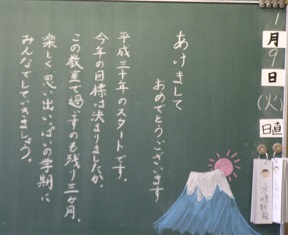 あけまして
おめでとうございます
平成三十年のスタートです。
今年の目標は決まりましたか。
この教室で過ごすのも残り三か月。
楽しく思い出いっぱいの学期に
みんなでしていきましょう。
1月9日(火)
日直